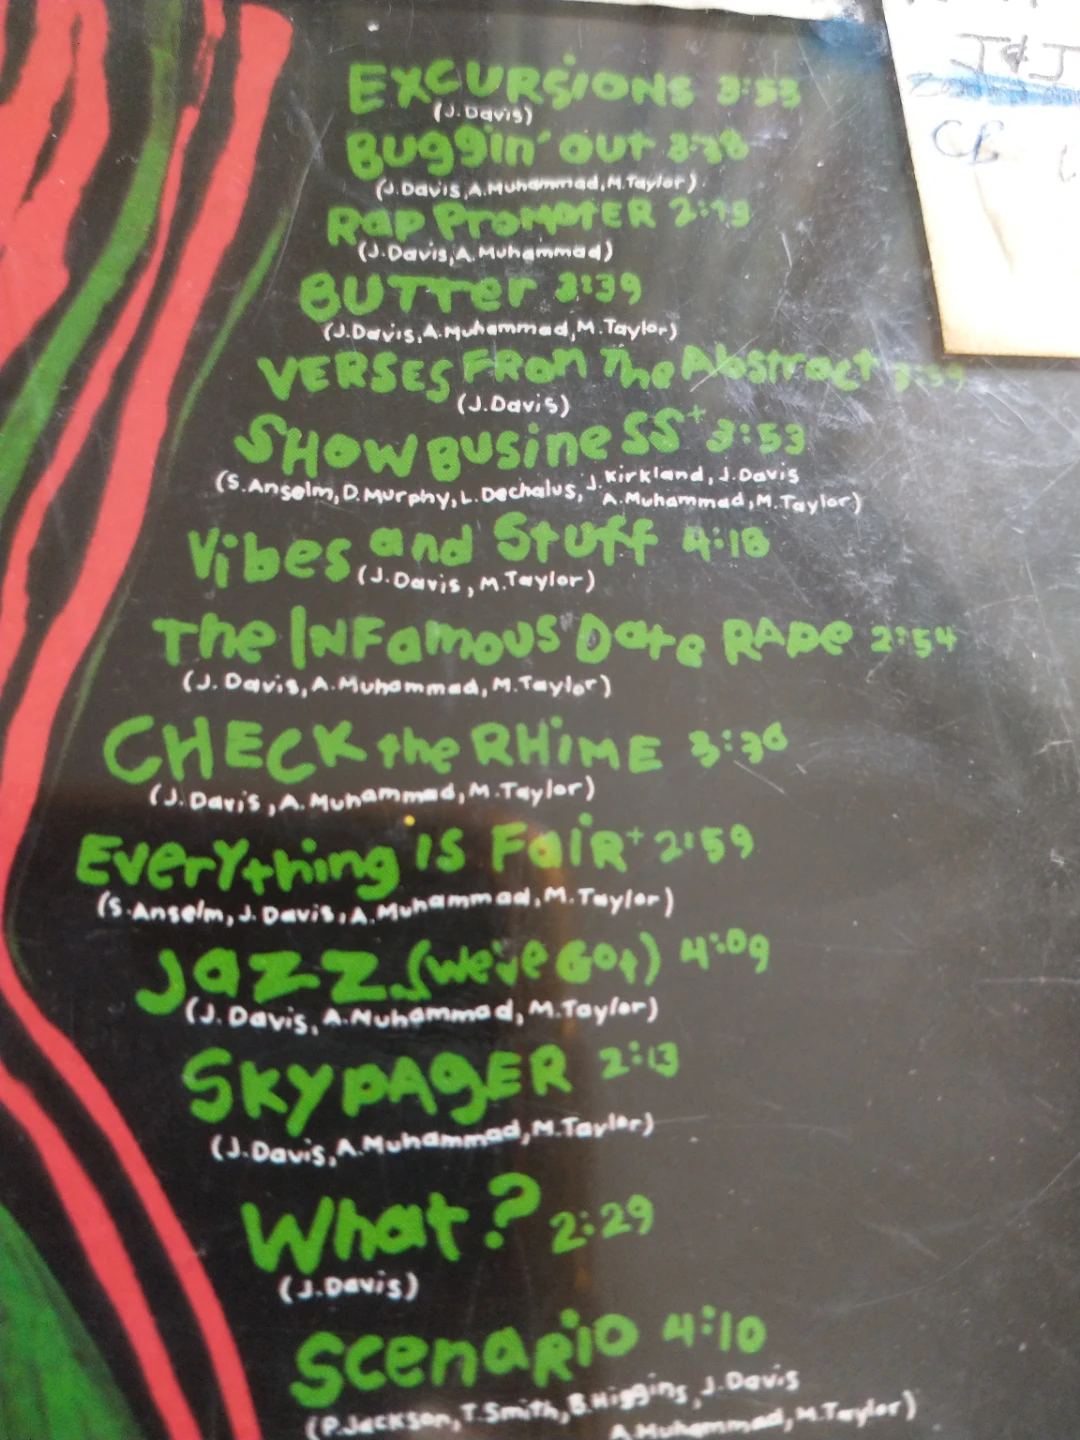 EXCURSIONS 3:53
(J.Davis)
Buggin' out 3:38
(J.Davis, A.Muhammad, M.Taylor)
Rap PromptER 2:19
(J.Davis, A.Muhammad)
BUTTer 3:39
(J.Davis, A.Muhammad, M.Taylor)
VERSES FROM The Abstract 3:59
(J.Davis)
SHOW BUSineSS+ 3:53
(S.Anselm, D.Murphy, L.Dechalus, J.Kirkland, J.Davis
A.Muhammad, M.Taylor)
Vibes and Stuff 4:18
(J.Davis, M.Taylor)
The INFamous Date RApe 2:54
(J. Davis, A.Muhammad, M.Taylor)
CHECK the RHiME 3:36
(J. Davis, A.Muhammad, M.Taylor)
EverYthing iS FaiR+ 2:59
(S.Anselm, J.Davis, A.Muhammad, M.Taylor)
Jazz (We've Got) 4:09
(J. Davis, A.Muhammad, M.Taylor)
SkypAgER 2:13
(J.Davis, A.Muhammad, M.Taylor)
What? 2:29
(J.Davis)
ScenaRio 4:10
(P.Jackson, T.Smith, B.Higgins, J.Davis
A.Muhammad, M.Taylor)
J&J
CB